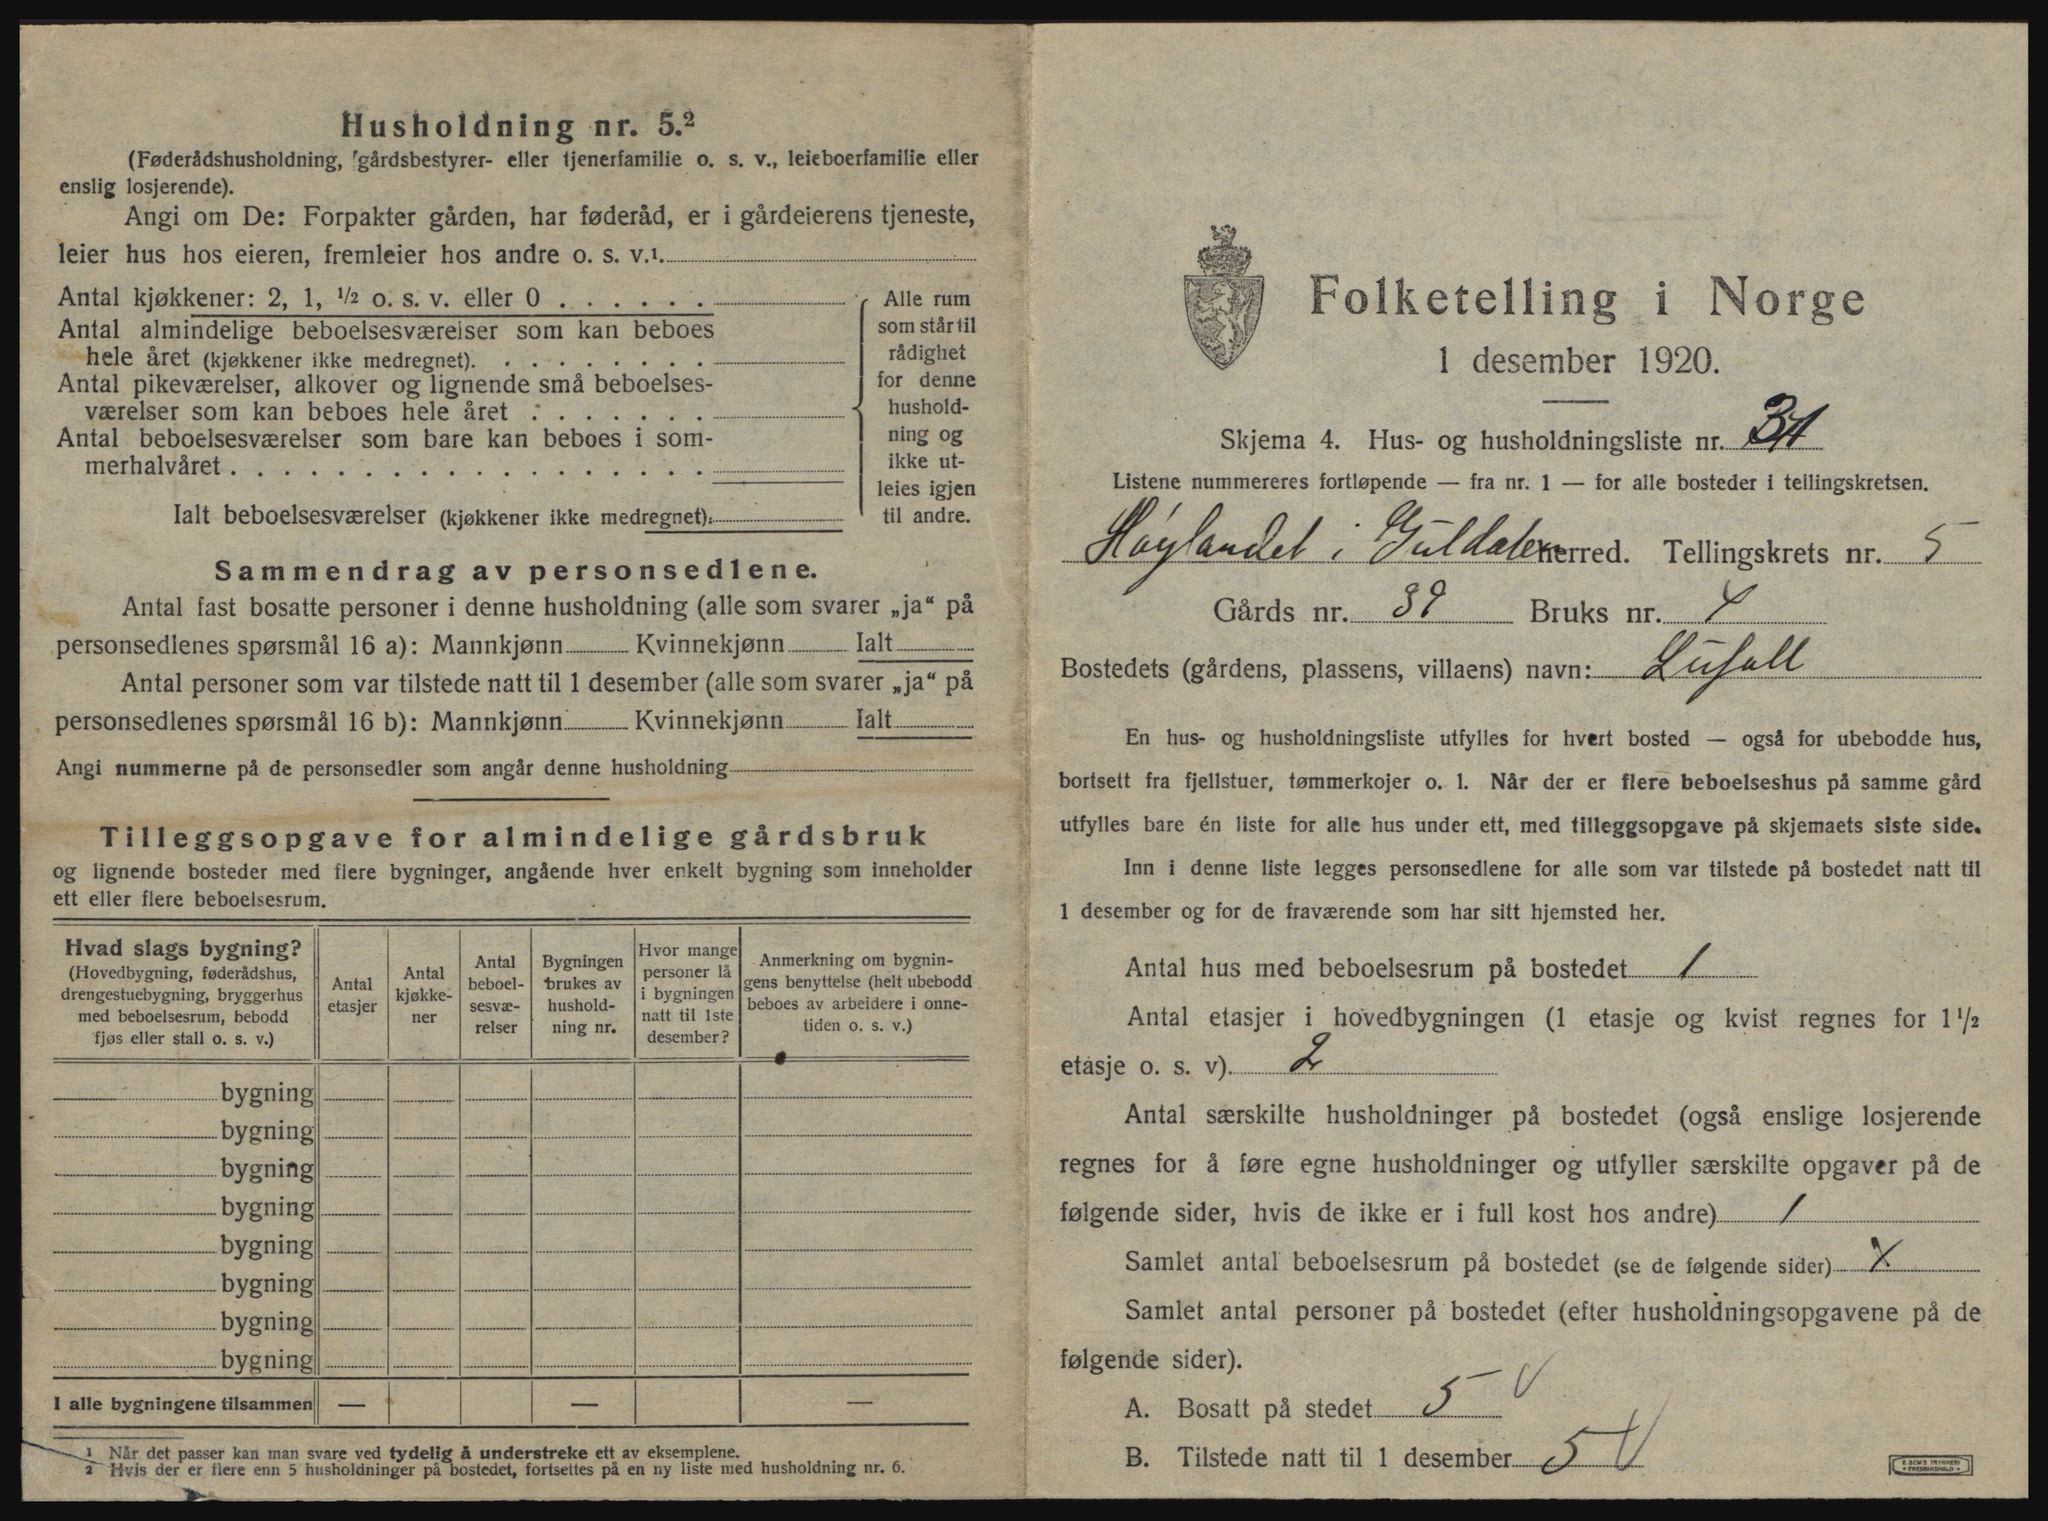 Husholdning nr. 5.²
(Føderådshusholdning, gårdsbestyrer- eller tjenerfamilie o. s. v., leieboerfamilie eller
enslig losjerende).
Angi om De: Forpakter gården, har føderåd, er i gårdeierens tjeneste,
leier hus hos eieren, fremleier hos andre o. s. v.¹
Antal kjøkkener: 2, 1, ½ o. s. v. eller 0
Antal almindelige beboelsesværelser som kan beboes
hele året (kjøkkener ikke medregnet)
Antal pikeværelser, alkover og lignende små beboelses-
værelser som kan beboes hele året
Antal beboelsesværelser som bare kan beboes i som-
merhalvåret
Alle rum
som står til
rådighet
for denne
hushold-
ning og
ikke ut-
leies igjen
til andre.
Ialt beboelsesværelser (kjøkkener ikke medregnet):
Sammendrag av personsedlene.
Antal fast bosatte personer i denne husholdning (alle som svarer „ja“ på
personsedlenes spørsmål 16 a): Mannkjønn Kvinnekjønn Ialt
Antal personer som var tilstede natt til 1 desember (alle som svarer „ja“ på
personsedlenes spørsmål 16 b): Mannkjønn Kvinnekjønn Ialt
Angi nummerne på de personsedler som angår denne husholdning
Tilleggsopgave for almindelige gårdsbruk
og lignende bosteder med flere bygninger, angående hver enkelt bygning som inneholder
ett eller flere beboelsesrum.
Hvad slags bygning?
(Hovedbygning, føderådshus,
drengestuebygning, bryggerhus
med beboelsesrum, bebodd
fjøs eller stall o. s. v.)
Antal
etasjer
Antal
kjøkke-
ner
Antal
beboel-
sesvæ-
relser
Bygningen
brukes av
hushold-
ning nr.
Hvor mange
personer lå
i bygningen
natt til 1ste
desember?
Anmerkning om bygnin-
gens benyttelse (helt ubebodd
beboes av arbeidere i onne-
tiden o. s. v.)
bygning
bygning
bygning
bygning
bygning
bygning
bygning
bygning
I alle bygningene tilsammen — — —
¹ Når det passer kan man svare ved tydelig å understreke ett av eksemplene.
² Hvis der er flere enn 5 husholdninger på bostedet, fortsettes på en ny liste med husholdning nr. 6.
Folketelling i Norge
1 desember 1920.
Skjema 4. Hus- og husholdningsliste nr.
Listene nummereres fortløpende — fra nr. 1 — for alle bosteder i tellingskretsen.
Høylandet i Guldalen herred. Tellingskrets nr. 5
Gårds nr. 39 Bruks nr. 4
Bostedets (gårdens, plassens, villaens) navn:
En hus- og husholdningsliste utfylles for hvert bosted — også for ubebodde hus,
bortsett fra fjellstuer, tømmerkojer o. l. Når der er flere beboelseshus på samme gård
utfylles bare én liste for alle hus under ett, med tilleggsopgave på skjemaets siste side.
Inn i denne liste legges personsedlene for alle som var tilstede på bostedet natt til
1 desember og for de fraværende som har sitt hjemsted her.
Antal hus med beboelsesrum på bostedet 1
Antal etasjer i hovedbygningen (1 etasje og kvist regnes for 1 ½
etasje o. s. v). 2
Antal særskilte husholdninger på bostedet (også enslige losjerende
regnes for å føre egne husholdninger og utfyller særskilte opgaver på de
følgende sider, hvis de ikke er i full kost hos andre) 1
Samlet antal beboelsesrum på bostedet (se de følgende sider) X
Samlet antal personer på bostedet (efter husholdningsopgavene på de
følgende sider).
A. Bosatt på stedet 5
B. Tilstede natt til 1 desember 5
E. SEM'S TRYKKERI
FREDRIKSHALD